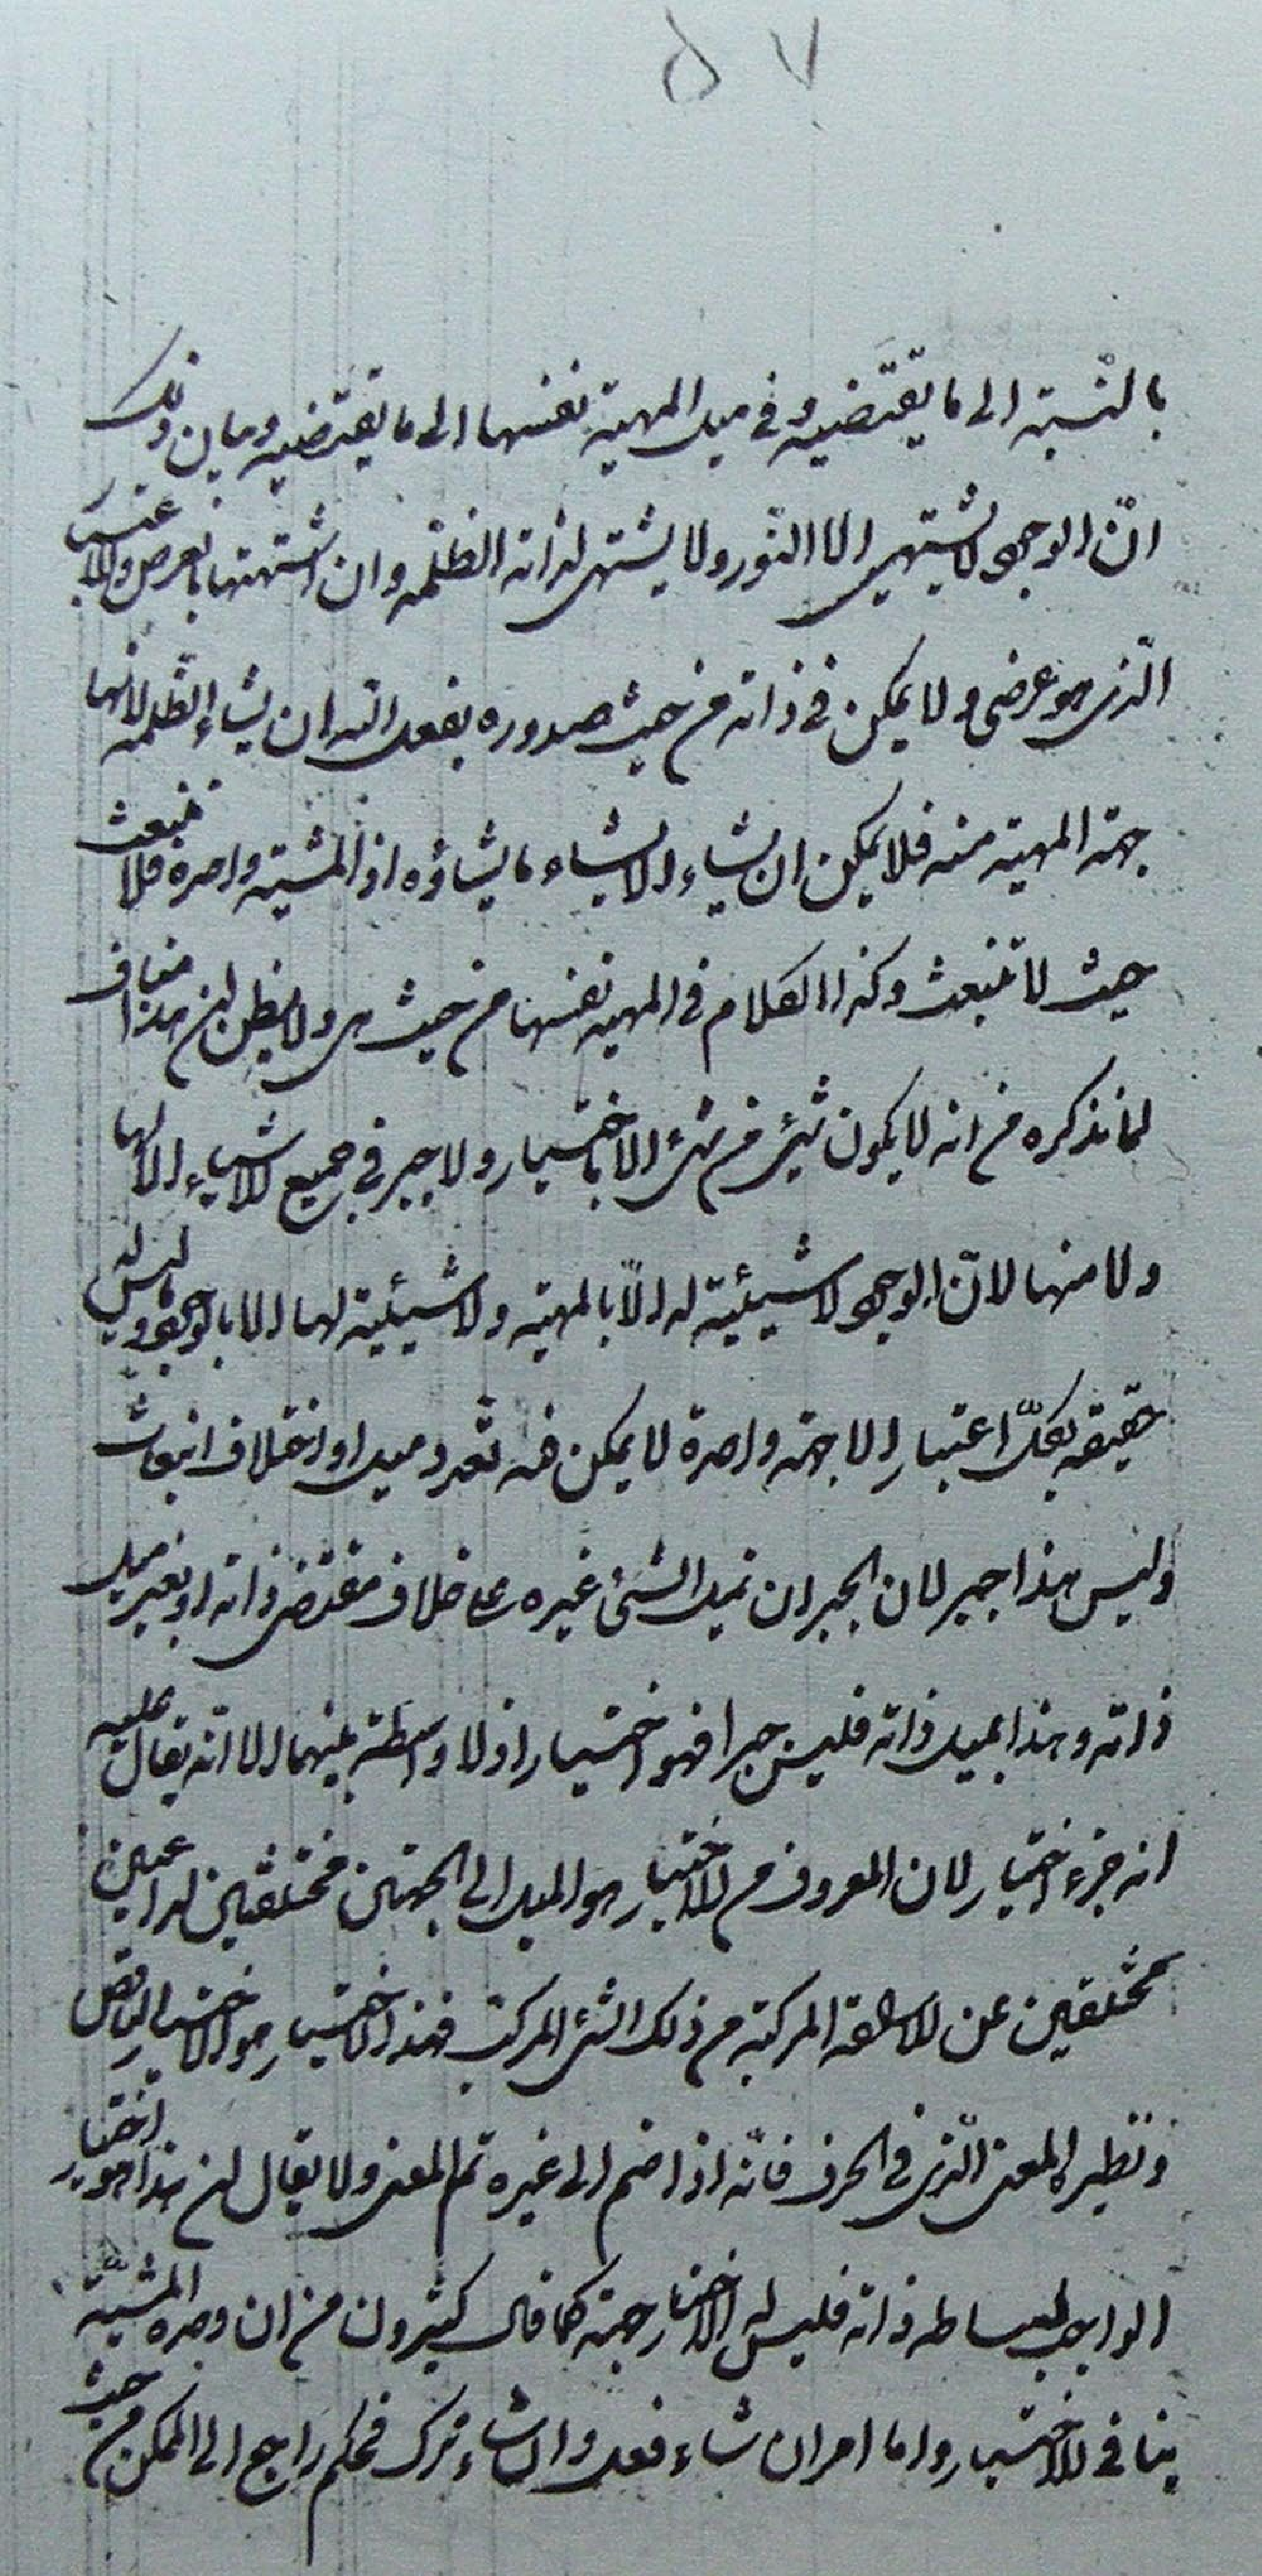 ٥٧
بالنّسبته الى ما يقتضيه و فى ميل المهيّة نفسها الى ما يقتضيه و بيان ذلك
انّ الوجود لا يشتهى الا النّور و لا يشتهى لذاته الظلمة و ان اشتهتها بالعرض و الاعتبار
الّذى هو عرضى و لا يمكن فى ذاته من حيث صدوره بفعل الله ان يشاء الظلمة لانها
جهة المهية منه فلا يمكن ان يشاء الا يشاء ما يشاؤه اذ المشية واحدة فلا تنبعث
حيث لا تنبعث و كذا الكلام فى المهية نفسها من حيث هى و لا يظن ان هذا مناف
لما نذكره من انه لا يكون شئ من شئ الا باختيار و لا جبر فى جميع الاشياء الا لها
و لا منها لانّ الوجود لا شيئية له الّا بالمهية و لا شيئية لها الا بالوجود و ليس له
حقيقة بكلّ اعتبار الا جهة واحدة لا يمكن فيه تعدد ميل او اختلاف انبعاث
و ليس هذا جبر لان الجبر ان يميل الشئ غيره على خلاف مقتضى ذاته او بغير ميل
ذاته و هذا بميل ذاته فليس جبرا فهو اختيار اذ لا واسطة بينهما الا انه يقال عليه
انه جزء اختيار لان المعروف من الاختيار هو الميل الى الجهتين مختلفتين لداعيين
مختلفين عن الاستطاعة المركبة من ذلك الشئ المركب فهذا الاختيار هو الاختيار الناقص
و نظيره المعنى الّذى فى الحرف فانّه اذا ضم الى غيره تم المعنى و لا يقال ان هذا هو اختيار
الواجب لبساطة ذاته فليس له الا اختيار جهة كما قال كثيرون من ان وحدة المشيّة
ينافى الاختيار و اما امر ان شاء فعل و ان شاء ترك فحكم راجع الى الممكن من حيث